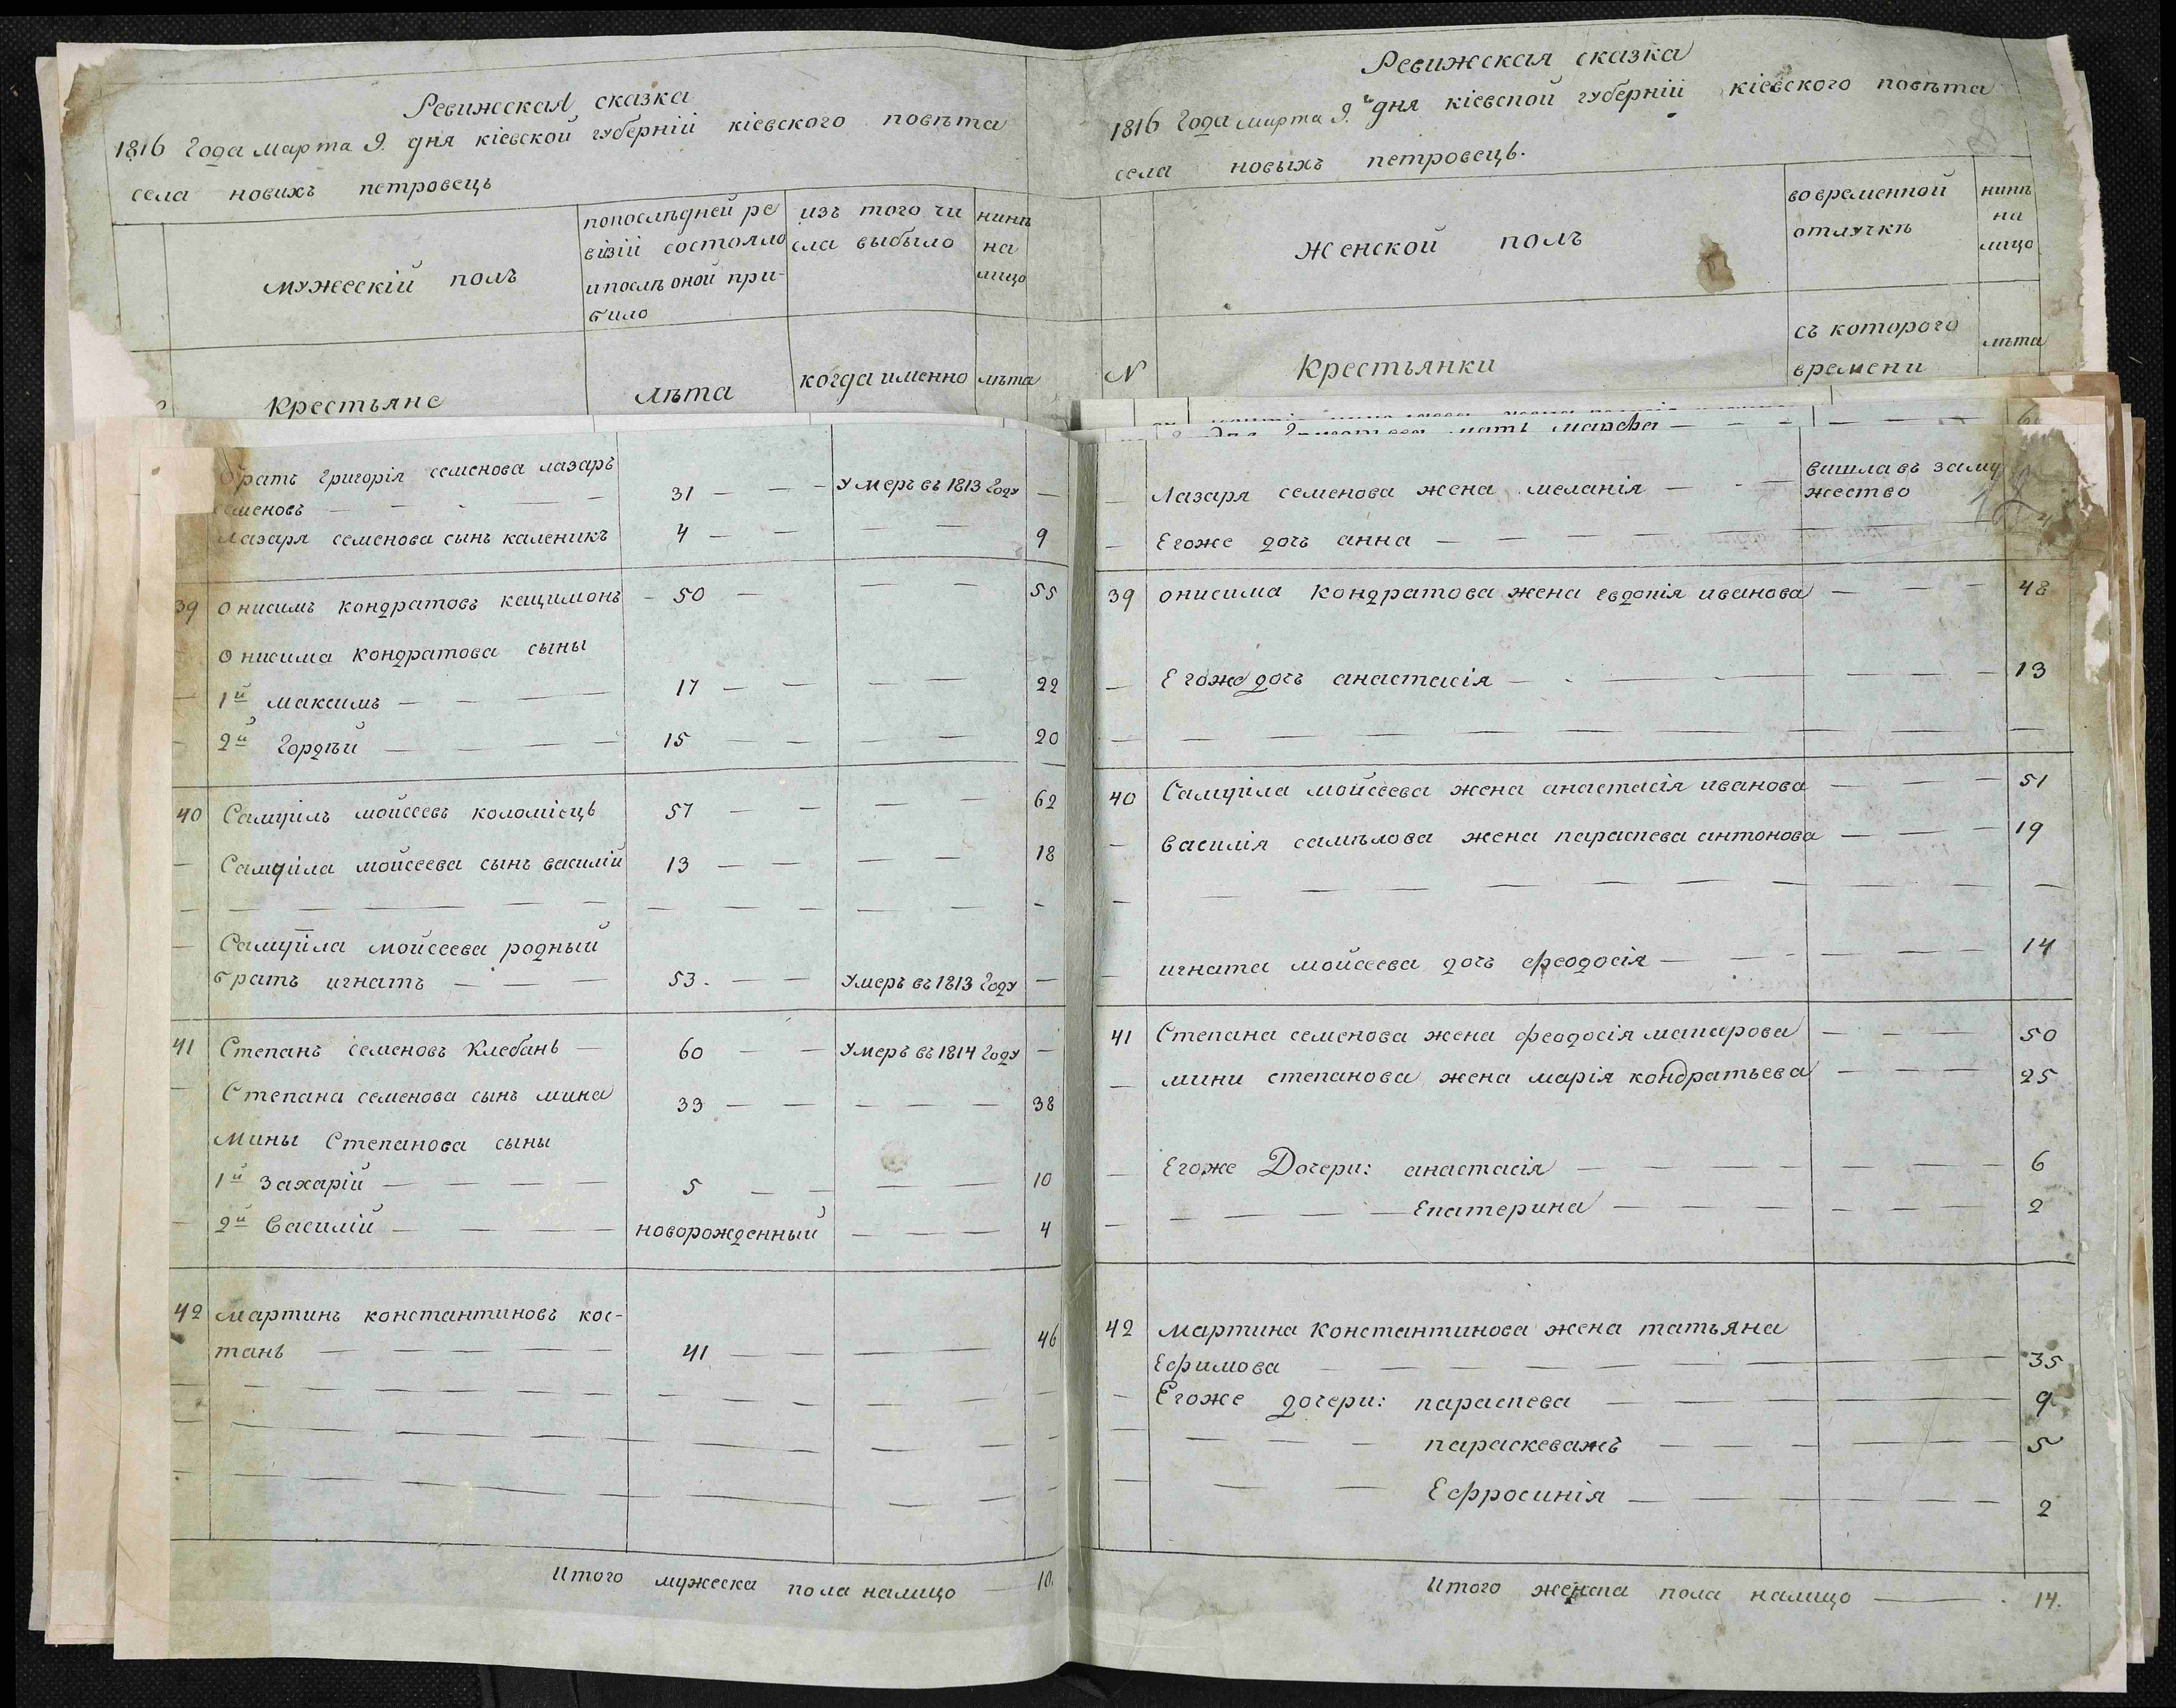 Ревижская сказка
1816 Года марта 9. дня кіевской губерніи кіевского повѣта
села новихъ петровець
мужескій полъ
попослѣдней ре
визіи состояло
ипослѣ оной при-
било
изъ того чи
сла выбыло
нинѣ
на
лицо
Крестьяне
лѣта
когда именно
лѣта
братъ Григорія семенова лазарь
семеновъ — — — 31 — — — умеръ въ 1813 Году —
лазаря семенова сынъ каленикъ 4 — — — — 9
39 онисимъ кондратовъ кацимонъ — 50 — — — 55
онисима кондратова сыны
1й максимъ — — — 17 — — — — 22
2й Гордѣй — — — — 15 — — — — 20
40 Самуилъ мойсеевъ коломіець 57 — — — — 62
— Самуила мойсеева сынъ василій 13 — — — — 18
— Самуила мойсеева родный
братъ игнатъ — — — 53. — — умеръ въ 1813 Году —
41 Степанъ семеновъ Клебанъ — 60 — — умеръ въ 1814 Году —
— Степана семенова сынъ мина 33 — — — — — 38
мины Степанова сыны
1й Захарій — — — — 5 — — — — 10
— 2й Василій — — — новорожденный — — — 4
42 мартинъ константиновъ кос-
танъ — — — — — 41 — — — — 46
Итого мужеска пола налицо — 10.
Ревижская сказка
1816 Года марта 9.го дня кіевской губерніи кіевского повѣта
села новыхъ петровець.
Женской полъ
вовременной
отлучкѣ
нинѣ
на
лицо
N
Крестьянки
съ которого
времени
лѣта
Григорьева мать марфа — — —
— Лазаря семенова жена меланія — - — вишла въ заму
жество
— Егоже дочь анна — — — — —
39 онисима кондратова жена евдокія иванова — — — 48
— Егоже дочь анастасія — - — — — — — 13
40 Самуила мойсеева жена анастасія иванова — — — 51
— василія самѣлова жена параскева антонова — — — 19
— игната мойсеева дочь феодосія — — - — — — 14
41 Степана семенова жена феодосія макарова — — — 50
— мини степанова жена марія кондратьева — — — 25
— Егоже Дочери: анастасія — — — — — — 6
— — — — — Екатерина — — — — — — 2
42 мартина Константинова жена татьяна
Ефимова — — — — — — — 35
— Егоже дочери: параскева — — — — — 9
— — — — параскеважъ — — — — — 5
— — — — Ефросинія — — — — — — 2
Итого женска пола налицо — . 14.